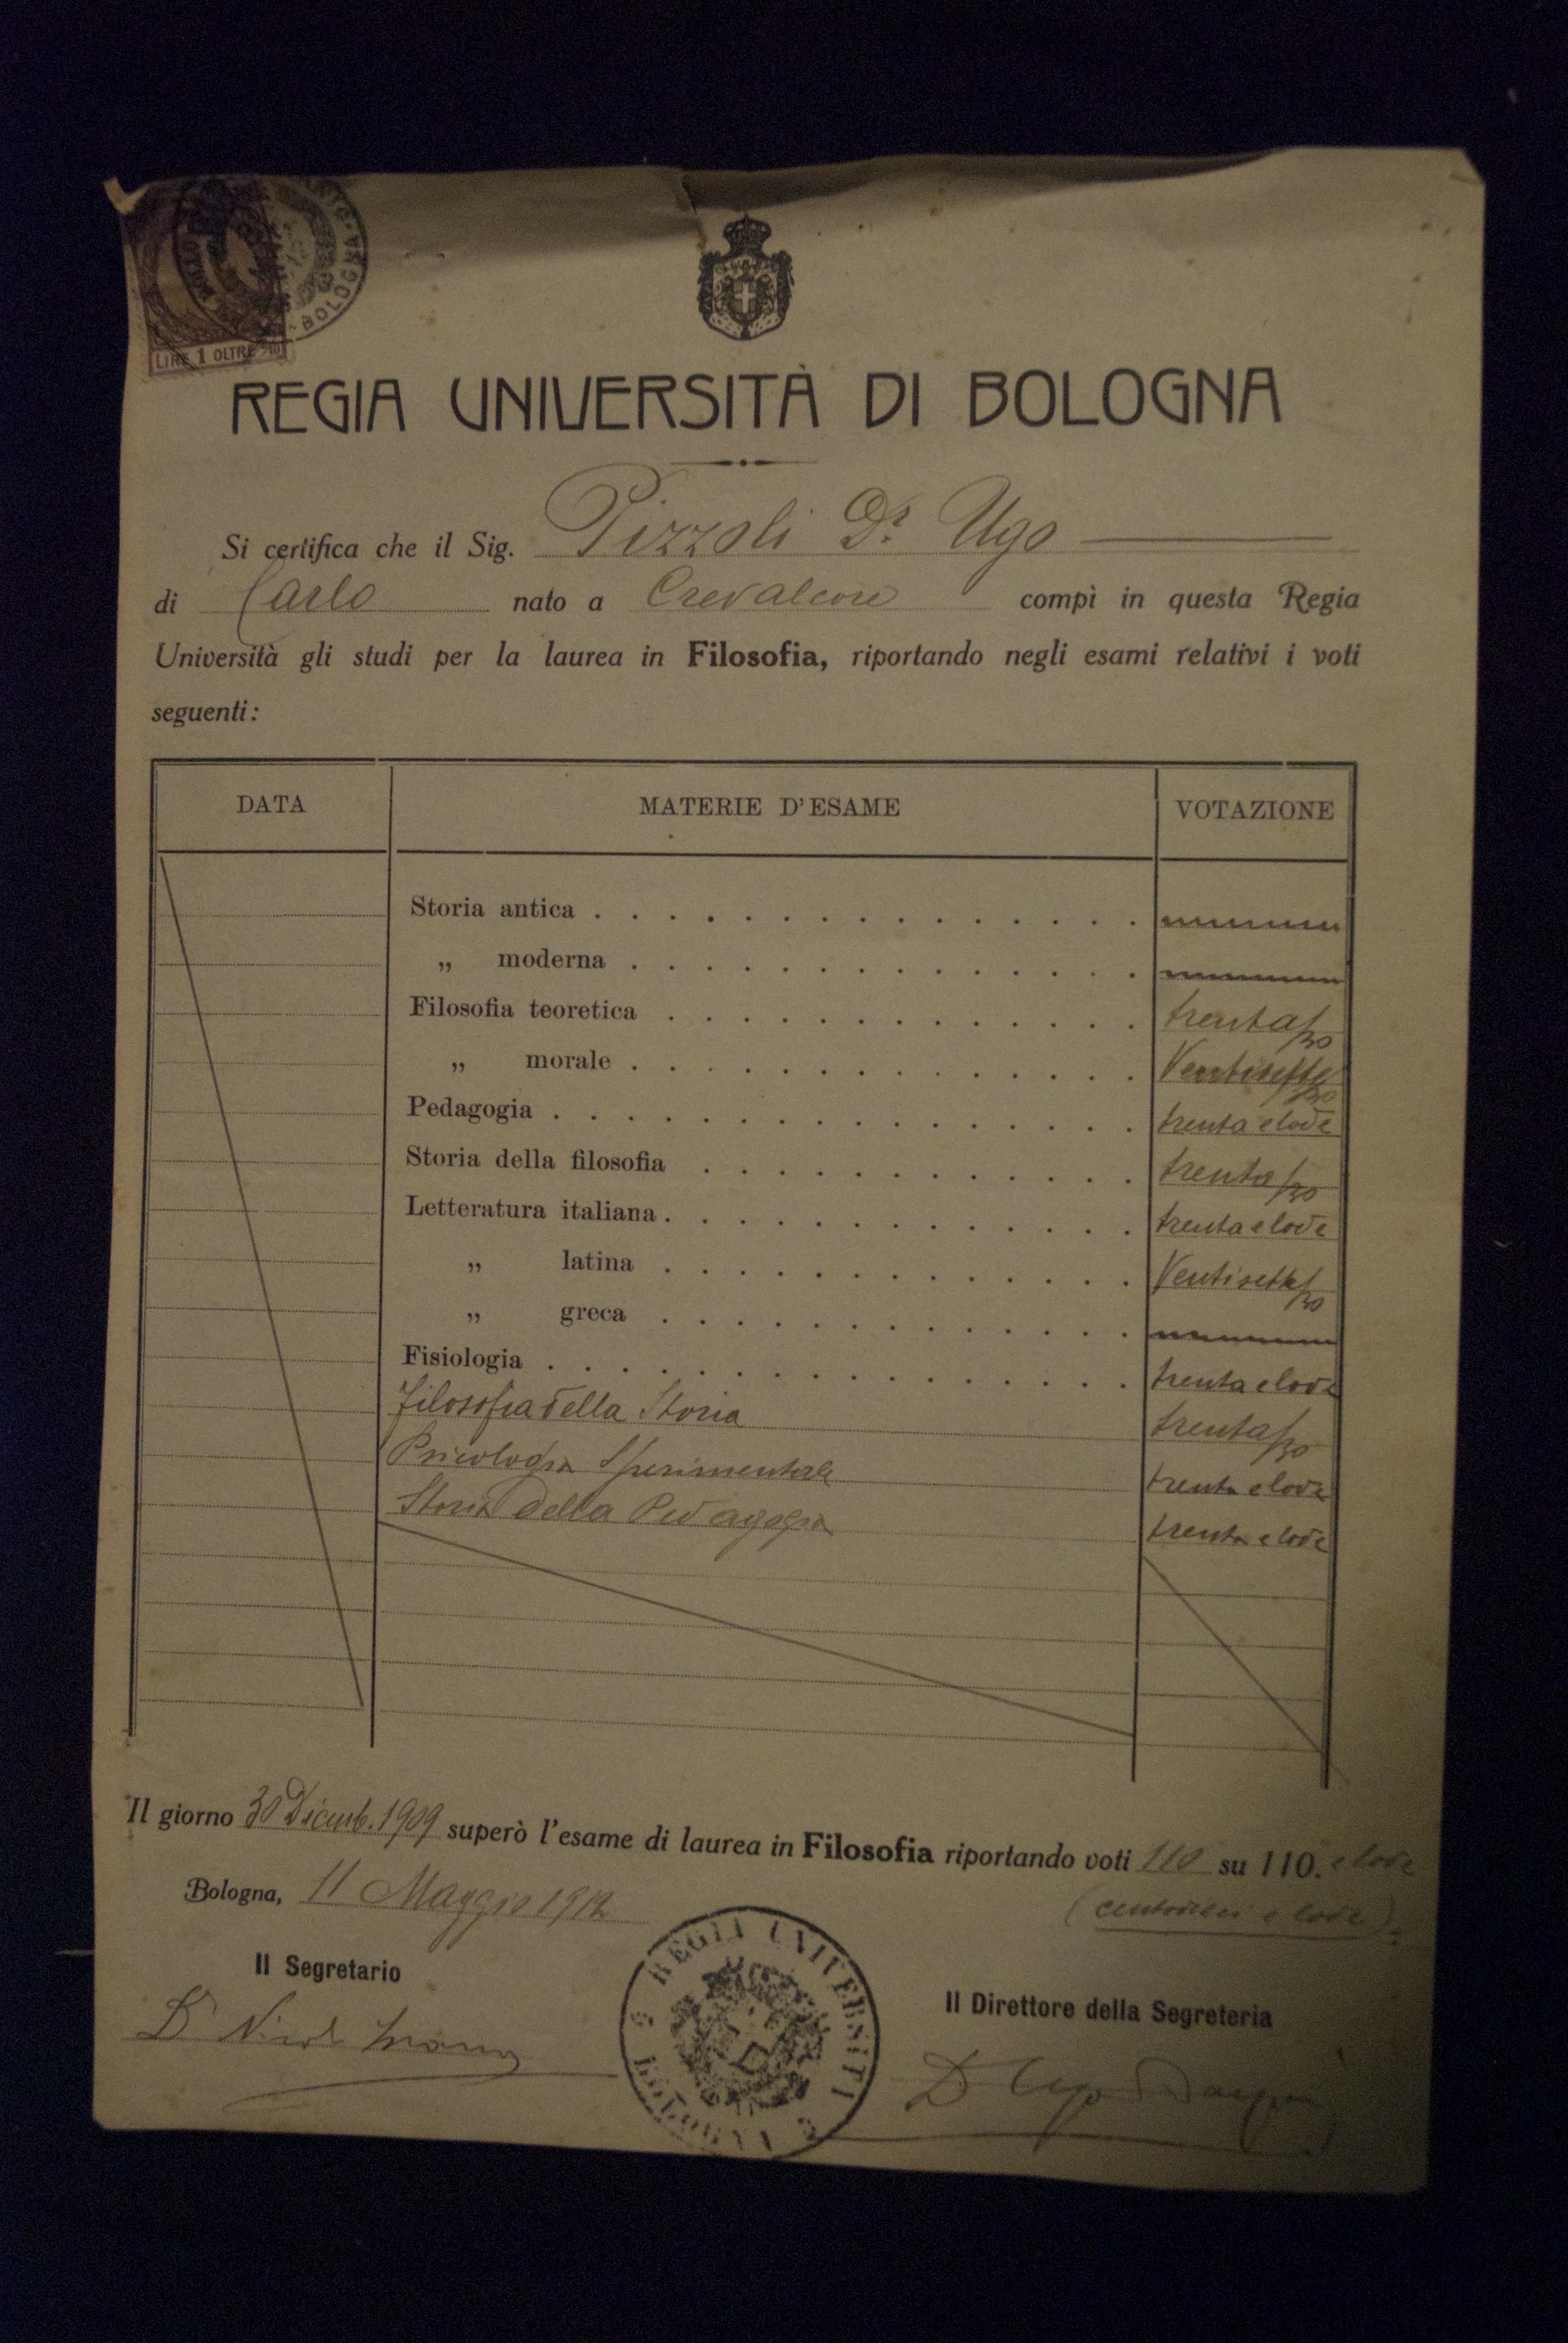 BOLLO
BOLOGNA
LIRE 1 OLTRE
REGIA UNIVERSITÀ DI BOLOGNA
Si certifica che il Sig. Pizzoli Dr. Ugo
di Carlo nato a Crevalcore compì in questa Regia
Università gli studi per la laurea in Filosofia, riportando negli esami relativi i voti
seguenti:
DATA MATERIE D'ESAME VOTAZIONE
Storia antica
„ moderna
Filosofia teoretica trenta/30
„ morale Ventisette/30
Pedagogia trenta e lode
Storia della filosofia trenta/30
Letteratura italiana trenta e lode
„ latina Ventisette/30
„ greca
Fisiologia trenta e lode
Filosofia della Storia trenta/30
Psicologia Sperimentale trenta e lode
Storia della Pedagogia trenta e lode
Il giorno 30 Dicemb. 1909 superò l'esame di laurea in Filosofia riportando voti 110 su 110. e lode
Bologna, 11 Maggio 1912 (centodieci e lode)
Il Segretario Il Direttore della Segreteria
REGIA UNIVERSITÀ
BOLOGNA